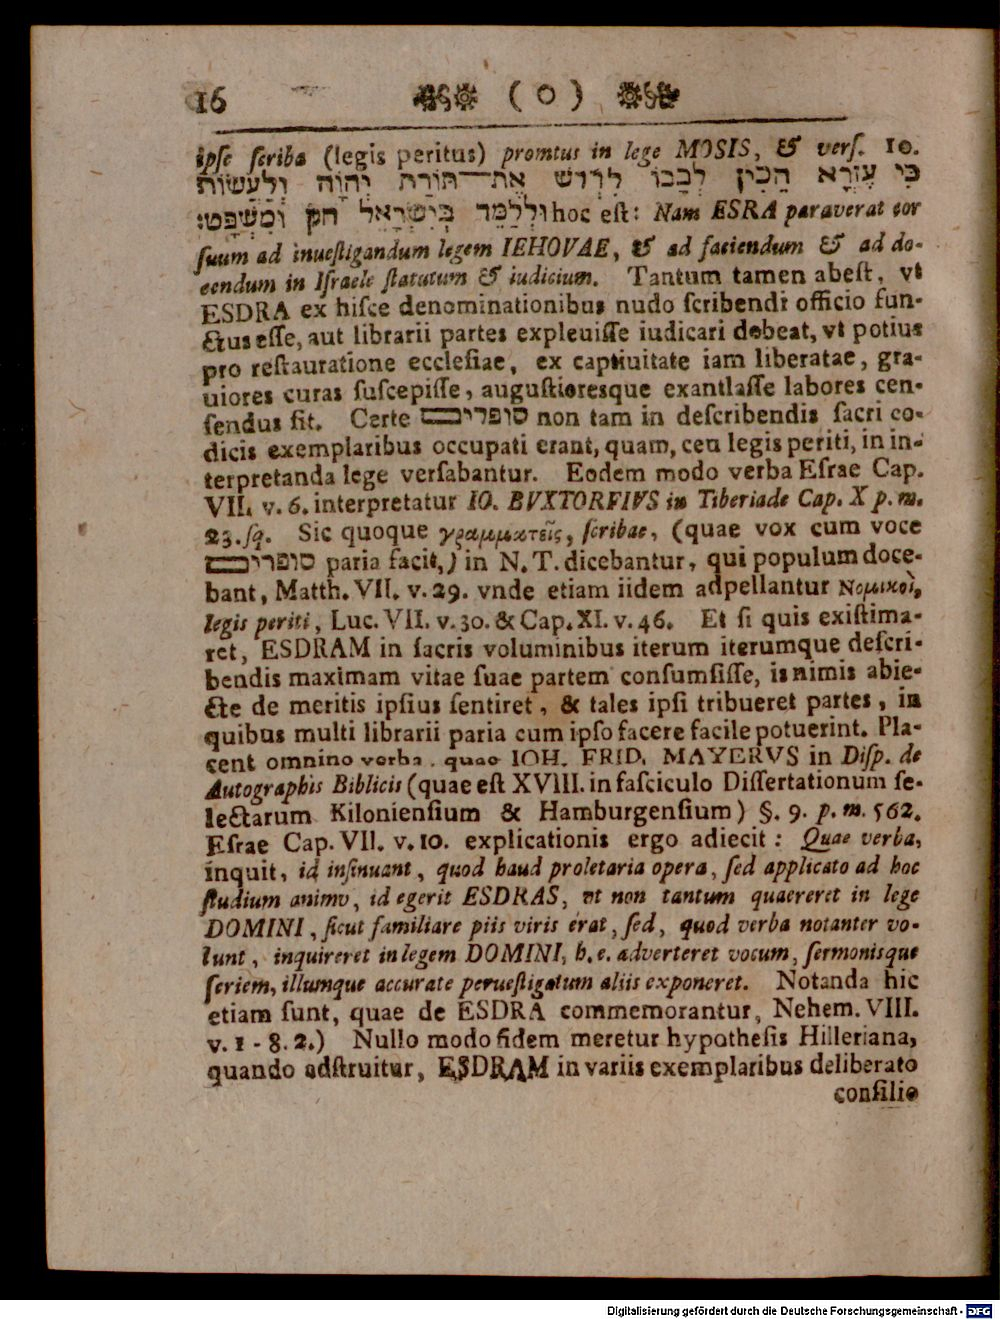 16 ( o )
ipſe ſcriba (legis peritus) promtus in lege MOSIS, & verſ. 10.
כִּי עֶזְרָא הֵכִין לְבָבוֹ לִדְרוֹשׁ אֶת־תּוֹרַת יְהוָֹה וְלַעֲשׂוֹת
וּלְלַמֵּד בְּיִשְׂרָאֵל חֹק וּמִשְׁפָּט׃ hoc eſt: Nam ESRA paraverat cor
ſuum ad inueſtigandum legem IEHOVAE, & ad faciendum & ad do-
cendum in Iſraele ſtatutum & iudicium. Tantum tamen abeſt, vt
ESDRA ex hiſce denominationibus nudo ſcribendi officio fun-
ctus eſſe, aut librarii partes expleuiſſe iudicari debeat, vt potius
pro reſtauratione eccleſiae, ex captiuitate iam liberatae, gra-
uiores curas ſuſcepiſſe, auguſtioresque exantlaſſe labores cen-
ſendus ſit. Certe סופרים non tam in deſcribendis ſacri co-
dicis exemplaribus occupati erant, quam, ceu legis periti, in in-
terpretanda lege verſabantur. Eodem modo verba Eſrae Cap.
VII. v. 6. interpretatur IO. BVXTORFIVS in Tiberiade Cap. X p. m.
23. ſq. Sic quoque γραμματεῖς, ſcribae, (quae vox cum voce
סופרים paria facit,) in N. T. dicebantur, qui populum doce-
bant, Matth. VII. v. 29. vnde etiam iidem adpellantur Νομικοὶ,
legis periti, Luc. VII. v. 30. & Cap. XI. v. 46. Et ſi quis exiſtima-
ret, ESDRAM in ſacris voluminibus iterum iterumque deſcri-
bendis maximam vitae ſuae partem conſumſiſſe, is nimis abie-
cte de meritis ipſius ſentiret, & tales ipſi tribueret partes, in
quibus multi librarii paria cum ipſo facere facile potuerint. Pla-
cent omnino verba, quae IOH. FRID. MAYERVS in Diſp. de
Autographis Biblicis (quae eſt XVIII. in faſciculo Diſſertationum ſe-
lectarum Kilonienſium & Hamburgenſium) §. 9. p. m. 562.
Eſrae Cap. VII. v. 10. explicationis ergo adiecit: Quae verba,
inquit, id inſinuant, quod haud proletaria opera, ſed applicato ad hoc
ſtudium animo, id egerit ESDRAS, vt non tantum quaereret in lege
DOMINI, ſicut familiare piis viris erat, ſed, quod verba notanter vo-
lunt, inquireret in legem DOMINI, h. e. adverteret vocum, ſermonisque
ſeriem, illumque accurate perueſtigatum aliis exponeret. Notanda hic
etiam ſunt, quae de ESDRA commemorantur, Nehem. VIII.
v. 1 - 8. 2.) Nullo modo fidem meretur hypotheſis Hilleriana,
quando adſtruitur, ESDRAM in variis exemplaribus deliberato
conſilio
Digitalisierung gefördert durch die Deutsche Forschungsgemeinschaft - DFG